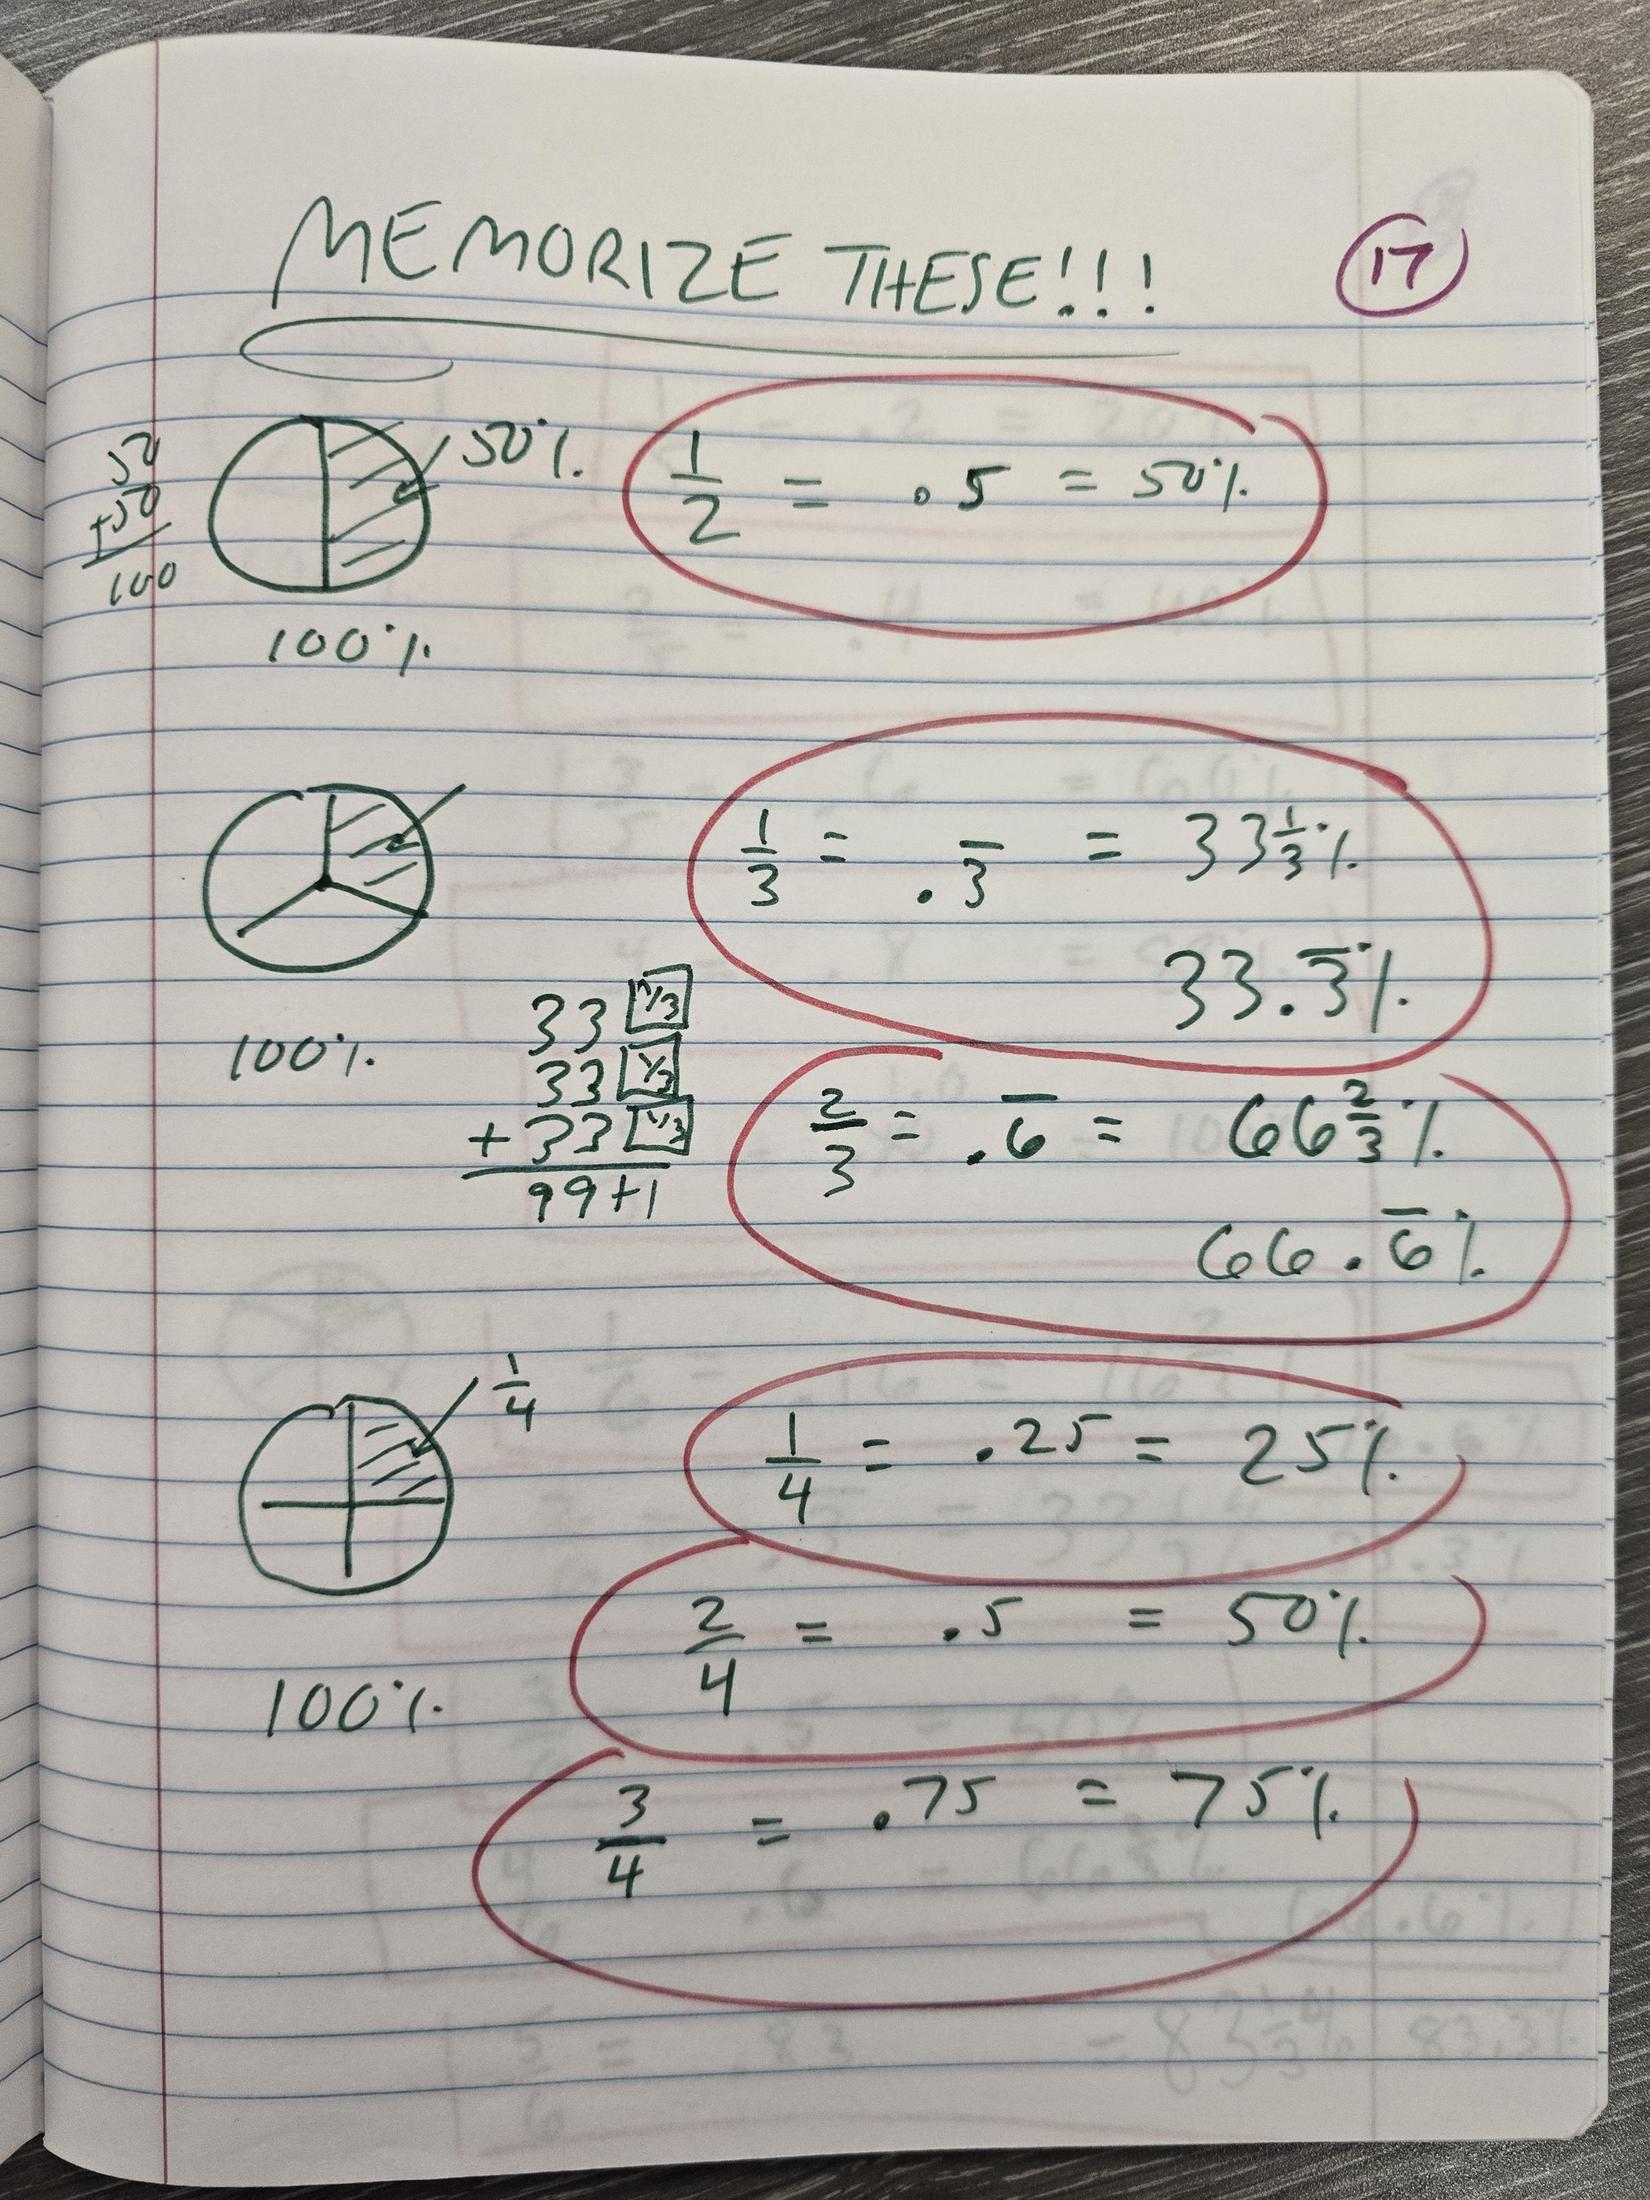 MEMORIZE THESE!!!
17
50
+50
100
50%
100%
1/2 = .5 = 50%
1/3 = .3̅ = 33 1/3 %
33.3̅%
100%
33 1/3
33 1/3
+33 1/3
99+1
2/3 = .6̅ = 66 2/3 %
66.6̅%
1/4
100%
1/4 = .25 = 25%
2/4 = .5 = 50%
3/4 = .75 = 75%